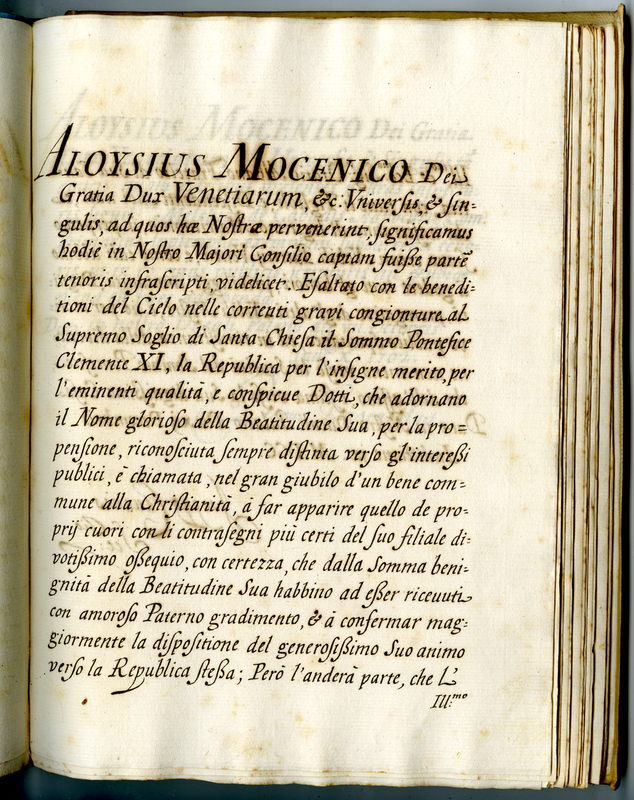 ALOYSIUS MOCENICO Dei
Gratia Dux Venetiarum, &c. Vniversis, & sin-
gulis, ad quos hæ Nostræ pervenerint, significamus
hodiè in Nostro Majori Consilio captam fuiße partẽ
tenoris infrascripti, videlicet. Esaltato con le benedi-
tioni del Cielo nelle correnti gravi congionture al
Supremo Soglio di Santa Chiesa il Sommo Pontefice
Clemente XI, la Republica per l'insigne merito, per
l'eminenti qualità, e conspicue Dotti, che adornano
il Nome glorioso della Beatitudine Sua, per la pro=
pensione, riconosciuta sempre distinta verso gl'intereßi
publici, è chiamata, nel gran giubilo d'un bene com=
mune alla Christianità, à far apparire quello de pro-
prij cuori con li contrasegni più certi del suo filiale di-
votißimo oßequio, con certezza, che dalla Somma beni-
gnità della Beatitudine Sua habbino ad eßer riceuuti
con amoroso Paterno gradimento, & à confermar mag=
giormente la dispositione del generosißimo Suo animo
verso la Republica steßa; Però l'anderà parte, che L'
Ill:mo